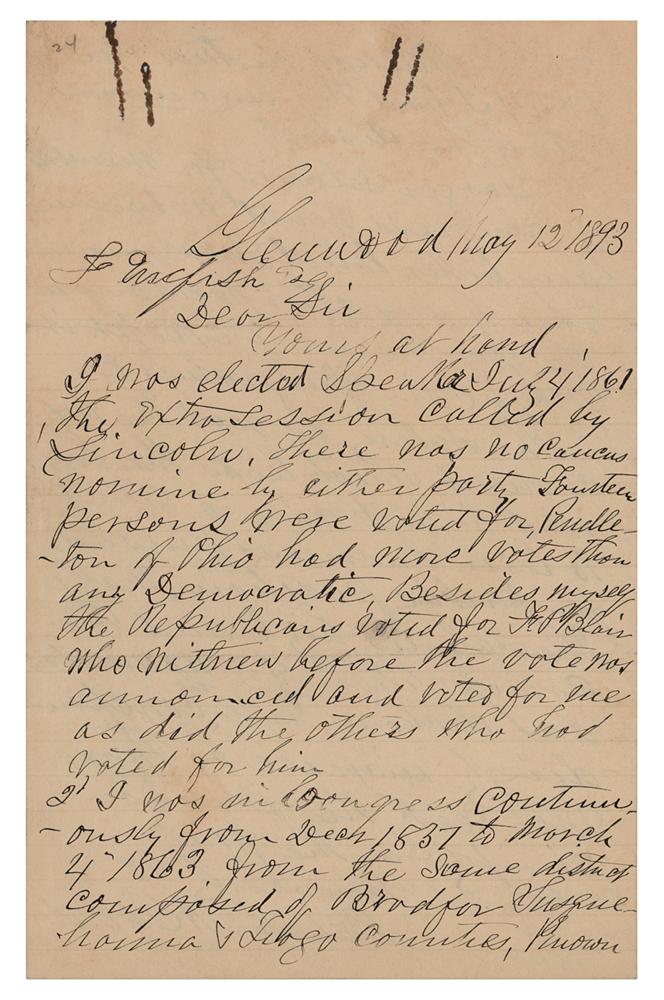 24
Glenwood May 12" 1893
F English
Dear Sir
Yours at hand
I was elected Speaker July 4, 1861
the Extra Session called by
Lincoln. There was no caucus
nomine by either party Fourteen
persons were voted for, Pendle-
-ton of Ohio had more votes than
any Democratic. Besides myself
the Republicans voted for F P Blair
who withrew before the vote was
announced and voted for me
as did the others who had
voted for him
2d I was in Congress continu-
-ously from Decr 1851 to March
4" 1863 from the same district
composed of Bradfor Susque-
hanna & Tioga counties, Known